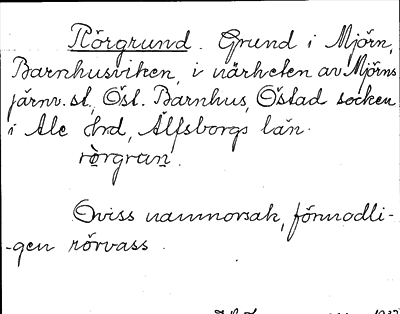 Rörgrund. Grund i Mjörn,
Barnhusviken, i närheten av Mjörns
järnv. st., Öst. Barnhus, Östad socken
i Ale Hrd, Älfsborgs län.
rörgrun.
Oviss namnorsak, förmodli-
-gen rörvass.